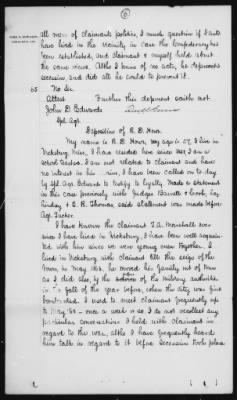 6
all men of claimants politics, I much question if I could
have lived in the vicinity in case the Confederacy has
been established, and claimant & myself held about
the same views. While I know of no acts, he deprecated
secession, and did all he could to prevent it.
65 No Sir.
Attest Further this deponent saith not
John D. Edwards
Spl. Agt.
Deposition of R. D.
My name is R. D. my age is 57, I live in
Vicksburg Miss, I have resided here since 1837, I am a
school teacher. I am not related to claimant and have
no interest in his claim, I have been called on to-day
by Spl. Agt. Edwards to testify to loyalty. Made a statement
in this case previously with Judges Barnett &
Lindsay & E. R. Thomas, said statement was made before
Agt. Tucker.
I have known the claimant T. A. Marshall ever
since I have lived in Vicksburg, I have been well acquain-
ted with him since we were young men together. I
lived in Vicksburg with claimant till the siege of the
town, in May 1863. he moved his family out of town
as I did also, by the advice of the military authorities
in the fall of the year before, when the city was first
bombarded. I used to meet claimant frequently up
to May 63 - once a week or so I do not recollect any
particular conversations I held with claimant in
regard to the war, altho I have frequently heard
him talk in regard to it before secession took place